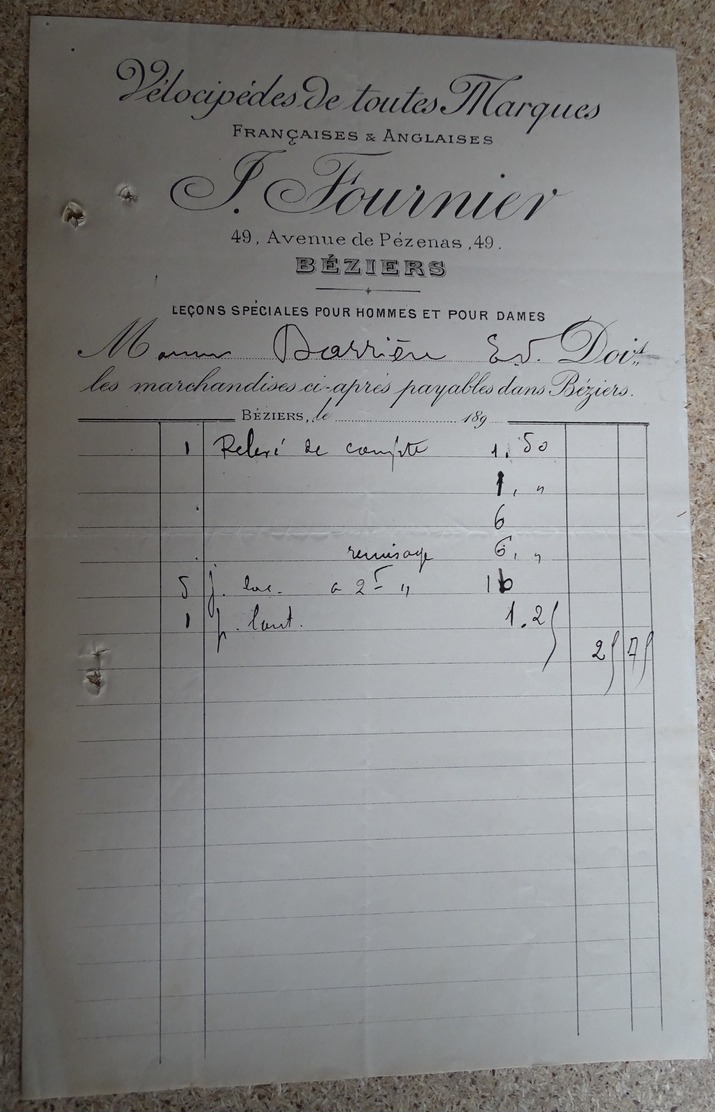 Vélocipèdes de toutes Marques
FRANÇAISES & ANGLAISES
J. Fournier
49, Avenue de Pézenas, 49.
BÉZIERS
LEÇONS SPÉCIALES POUR HOMMES ET POUR DAMES
M Barrière Ed. Doit
les marchandises ci-après payables dans Béziers.
BÉZIERS, le 189
1 Relevé de compte 1. 50
1, "
6
remisage 6, "
5 j. loc. a 2 F "
1 p. 1.25
25 75